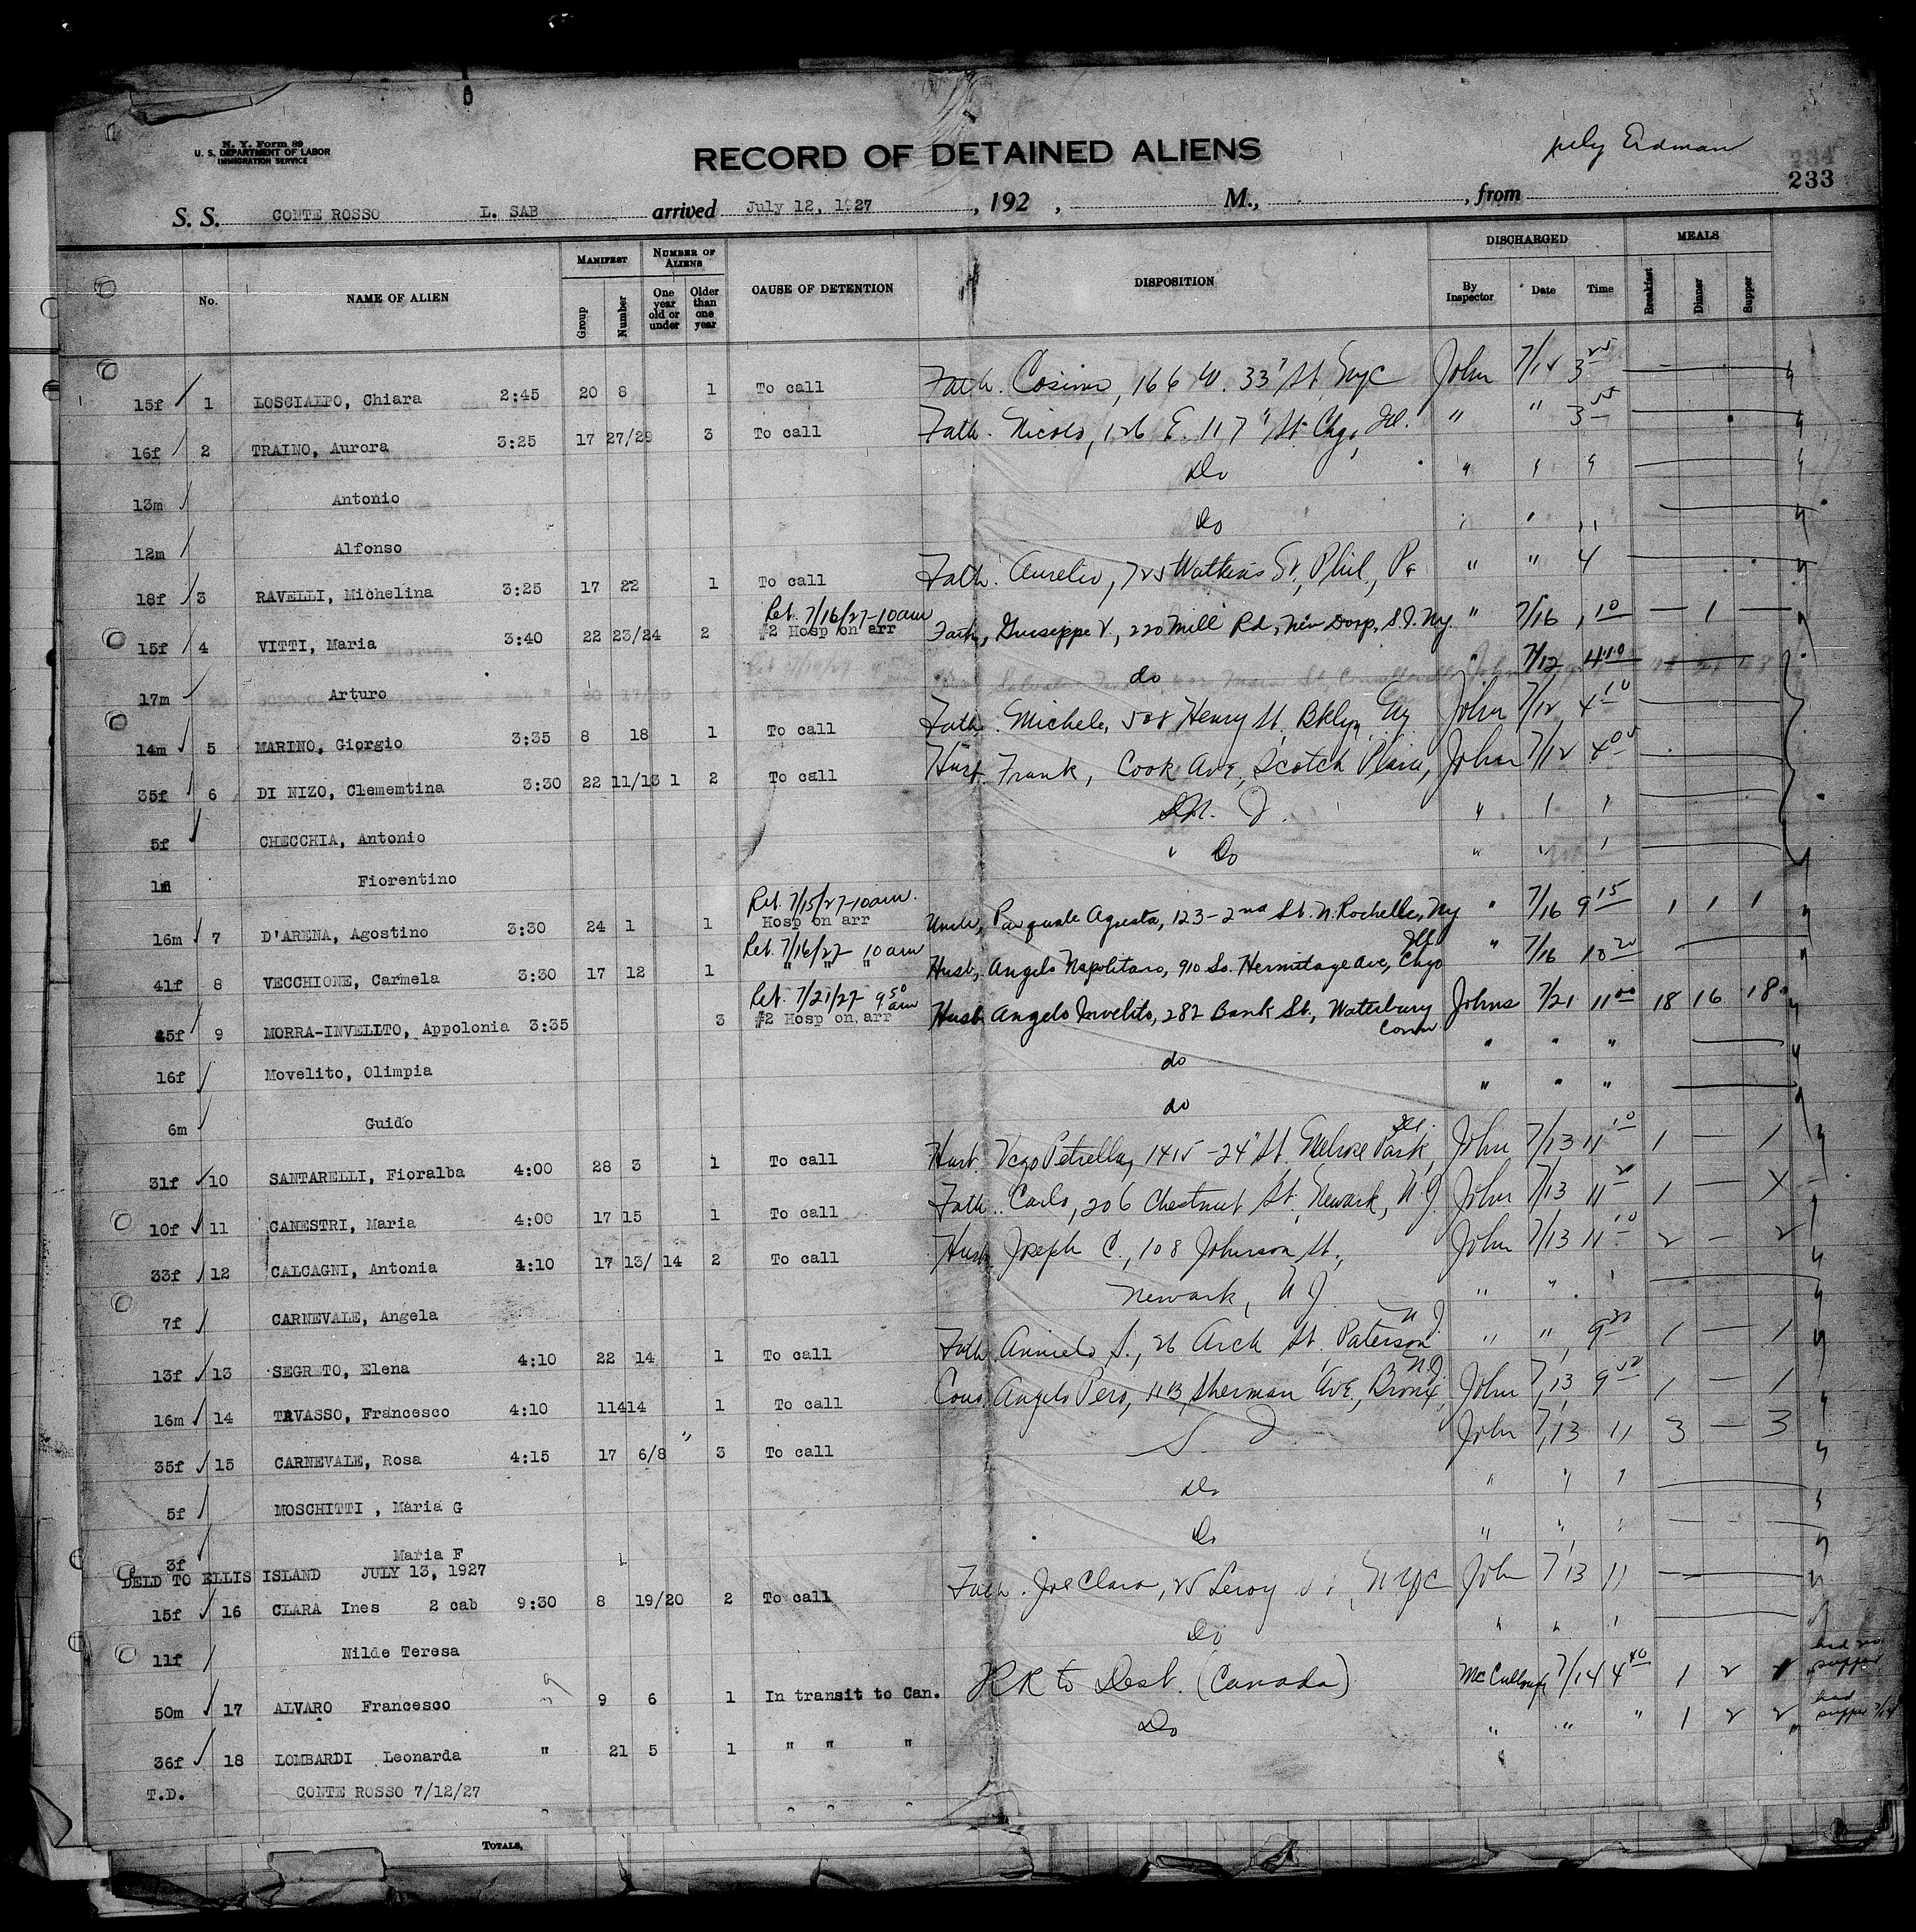 N. Y. Form 89
U. S. DEPARTMENT OF LABOR
IMMIGRATION SERVICE
RECORD OF DETAINED ALIENS
Erdman
234
233
S. S. CONTE ROSSO L. SAB arrived July 12, 1927, 192 , M., , from
No. NAME OF ALIEN MANIFEST Group Number NUMBER OF ALIENS One year old or under Older than one year CAUSE OF DETENTION DISPOSITION DISCHARGED By Inspector Date Time MEALS Breakfast Dinner Supper
15f 1 LOSCIALPO, Chiara 2:45 20 8 1 To call Fath. Cosimo, 166 W. 33 St NyC John 7/15 3 25
16f 2 TRAINO, Aurora 3:25 17 27/29 3 To call Fath. Nicolo, 126 E. 117 St Chgo, Ill. " " 3 55
13m Antonio Do " " "
12m Alfonso Do " " "
18f 3 RAVELLI, Michelina 3:25 17 22 1 To call Fath. Aurelio, 725 Watkins St, Phil, Pa " " 4
Ret. 7/16/27-10am
15f 4 VITTI, Maria 3:40 22 23/24 2 #2 Hosp on arr Fath, Guiseppe V., 220 Mill Rd, New Dorp, S.I. Ny. " 7/16 1 10 — 1 —
17m Arturo do " 7/12 4 10
14m 5 MARINO, Giorgio 3:35 8 18 1 To call Fath. Michele, 508 Henry St, Bklyn, Ny John 7/12 4 10
35f 6 DI NIZO, Clememtina 3:30 22 11/13 1 2 To call Husb. Frank, Cook Ave, Scotch Plain, John 7/12 4 05
5f CHECCHIA, Antonio N. J. " " "
1m Fiorentino " Do " " "
Ret. 7/15/27-10am.
16m 7 D'ARENA, Agostino 3:30 24 1 1 Hosp on arr Uncle, Pasquale Agusta, 123-2nd St. N. Rochelle, Ny " 7/16 9 15 1 1 1
Ret. 7/16/27 10am
41f 8 VECCHIONE, Carmela 3:30 17 12 1 " " " Husb, Angelo Napolitano, 910 So. Hermitage Ave, Chgo Ill " 7/16 10 20
Ret. 7/21/27 9 50 am
45f 9 MORRA-INVELITO, Appolonia 3:35 3 #2 Hosp on arr Husb Angelo Invelito, 282 Bank St., Waterbury Conn Johns 7/21 11 00 18 16 18
16f Movelito, Olimpia do " " "
6m Guido do " " "
31f 10 SANTARELLI, Fioralba 4:00 28 3 1 To call Husb. Petrella, 1415-24" St. Melrose Park, Ill. John 7/13 11 10 1 — 1
10f 11 CANESTRI, Maria 4:00 17 15 1 To call Fath. Carlo, 206 Chestnut St. Newark, N.J. John 7/13 11 20 1 —
33f 12 CALCAGNI, Antonia 4:10 17 13/ 14 2 To call Husb. Joseph C., 108 Johnson St., John 7/13 11 10 2 — 2
7f CARNEVALE, Angela Newark, N J " " "
13f 13 SEGRETO, Elena 4:10 22 14 1 To call Fath. Aniello S., 26 Arch St. Paterson N J " " 9 30 1 — 1
16m 14 TAVASSO, Francesco 4:10 11414 1 To call Cous Angelo Pero, 1113 Sherman Ave, Bronx, John 7/13 9 50 1 — 1
35f 15 CARNEVALE, Rosa 4:15 17 6/8 " 3 To call S. I. John 7/13 11 3 — 3
5f MOSCHITTI , Maria G Do " " "
3f Maria F Do " " "
DELD TO ELLIS ISLAND JULY 13, 1927
15f 16 CLARA Ines 2 cab 9:30 8 19/20 2 To call Fath. Joe Clara, 25 Leroy St, NYC John 7/13 11
11f Nilde Teresa Do " " "
50m 17 ALVARO Francesco 9 6 1 In transit to Can. RR to Dest. (Canada) McCullough 7/14 4 40 1 2 had no supper
36f 18 LOMBARDI Leonarda " 21 5 1 " " " Do " " " 1 2 2 had supper 7/14
T.D. CONTE ROSSO 7/12/27
TOTALS,